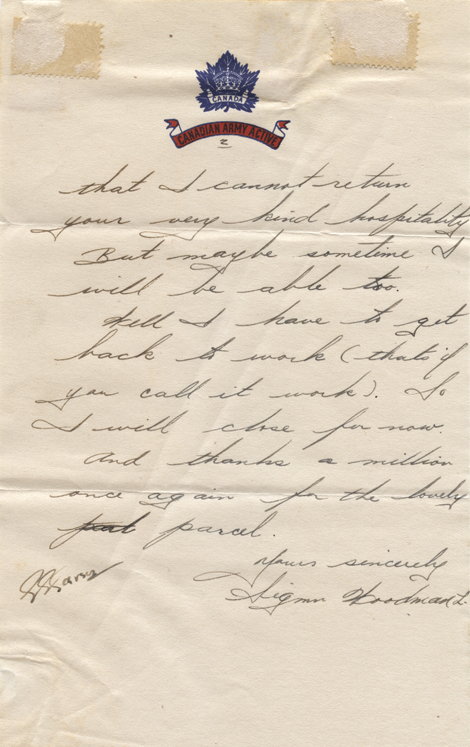 CANADA
CANADIAN ARMY ACTIVE
2
that I cannot return
your very kind hospitality
But maybe sometime I
will be able too.
Well I have to get
back to work (that's if
you call it work). So
I will close for now.
And thanks a million
once again for the lovely
parcel.
Yours sincerely
Sigmn Woodman L.